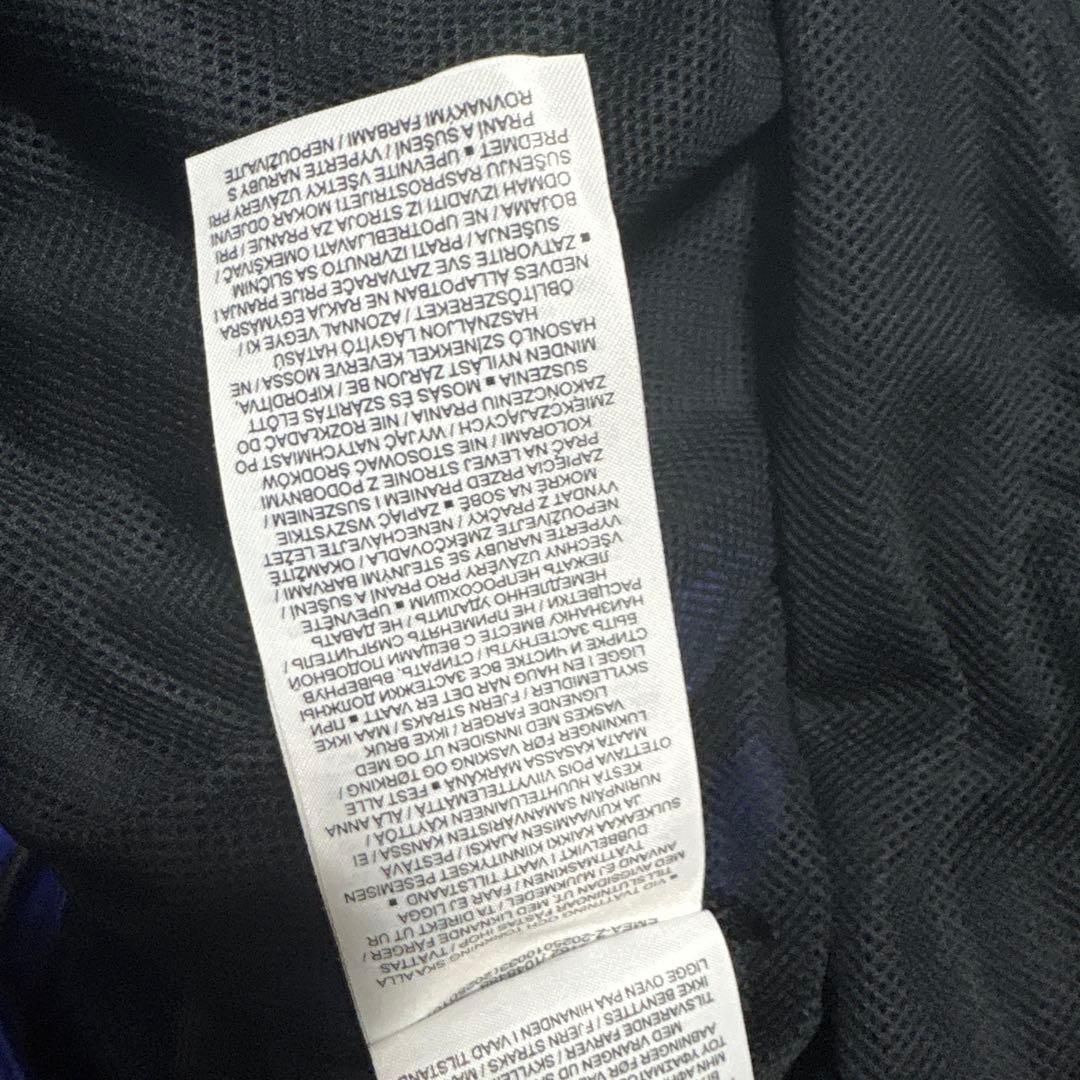 TILSVARENDE FARVER / SKYLLEMIDDEL MAA
IKKE BENYTTES / FJERN STRAKS / MAA IKKE
LIGGE OVEN PAA HINANDEN I VAAD TILSTAND
■ VID TVÄTTNING OCH TORKNING SKA ALLA
TILLSLUTNINGAR FÄSTAS IHOP / TVÄTTAS
MED AVIGSIDAN UT, MED LIKNANDE FÄRGER /
ANVÄND EJ MJUKMEDEL / TA DIREKT UT UR
TVÄTTMASKINEN / FAAR EJ LIGGA
DUBBELVIKT I VAATT TILLSTAAND ■
SULKEKAA KAIKKI KIINNITYKSET PESEMISEN
JA KUIVAAMISEN AJAKSI / PESTÄVÄ
NURINPÄIN SAMANVÄRISTEN KANSSA / EI
KESTÄ HUUHTELUAINEEN KÄYTTÖÄ /
OTETTAVA POIS VIIVYTTELEMÄTTÄ / ÄLÄ ANNA
MAATA KASASSA MÄRKÄNÄ ■ FEST ALLE
LUKNINGER FØR VASKING OG TØRKING /
VASKES MED INNSIDEN UT OG MED
LIGNENDE FARGER / IKKE BRUK
SKYLLEMIDLER / FJERN STRAKS / MAA IKKE
LIGGE I EN HAUG NÅR DET ER VAATT ■ ПРИ
СТИРКЕ И ЧИСТКЕ ВСЕ ЗАСТЕЖКИ ДОЛЖНЫ
БЫТЬ ЗАСТЕГНУТЫ / СТИРАТЬ, ВЫВЕРНУВ
НАИЗНАНКУ ВМЕСТЕ С ВЕЩАМИ ПОДОБНОЙ
РАСЦВЕТКИ / НЕ ПРИМЕНЯТЬ СМЯГЧИТЕЛЬ /
НЕМЕДЛЕННО УДАЛИТЬ / НЕ ДАВАТЬ
ЛЕЖАТЬ НЕПРОСОХШИМ ■ UPEVNĚTE
VŠECHNY UZÁVĚRY PRO PRANÍ A SUŠENÍ /
VYPERTE NARUBY SE STEJNÝMI BARVAMI /
NEPOUŽÍVEJTE ZMĚKČOVADLA / OKAMŽITĚ
VYNDAT Z PRAČKY / NENECHÁVEJTE LEŽET
MOKRÉ NA SOBĚ ■ ZAPIĄĆ WSZYSTKIE
ZAPIĘCIA PRZED PRANIEM I SUSZENIEM /
PRAĆ NA LEWEJ STRONIE Z PODOBNYMI
KOLORAMI / NIE STOSOWAĆ ŚRODKÓW
ZMIĘKCZAJĄCYCH / WYJĄĆ NATYCHMIAST PO
ZAKOŃCZENIU PRANIA / NIE ROZKŁADAĆ DO
SUSZENIA ■ MOSÁS ÉS SZÁRÍTÁS ELŐTT
MINDEN NYÍLÁST ZÁRJON BE / KIFORDÍTVA,
HASONLÓ SZÍNEKKEL KEVERVE MOSSA / NE
HASZNÁLJON LÁGYÍTÓ HATÁSÚ
ÖBLÍTŐSZEREKET / AZONNAL VEGYE KI /
NEDVES ÁLLAPOTBAN NE RAKJA EGYMÁSRA
■ ZATVORITE SVE ZATVARAČE PRIJE PRANJA I
SUŠENJA / PRATI IZVRNUTO SA SLIČNIM
BOJAMA / NE UPOTREBLJAVATI OMEKŠIVAČ /
ODMAH IZVADITI IZ STROJA ZA PRANJE / PRI
SUŠENJU RASPROSTRIJETI MOKAR ODJEVNI
PREDMET ■ UPEVNITE VŠETKY UZÁVERY PRI
PRANÍ A SUŠENÍ / VYPERTE NARUBY S
ROVNAKÝMI FARBAMI / NEPOUŽÍVAJTE